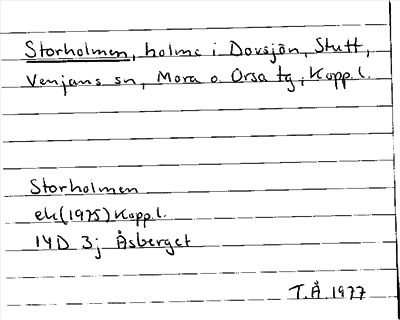 Storholmen, holme i Dovsjön, Stutt,
Venjans sn, Mora o Orsa tg, Kopp.l.
Storholmen
ek (1975) Kopp.l.
14D 3j Åsberget
T.Å. 1977